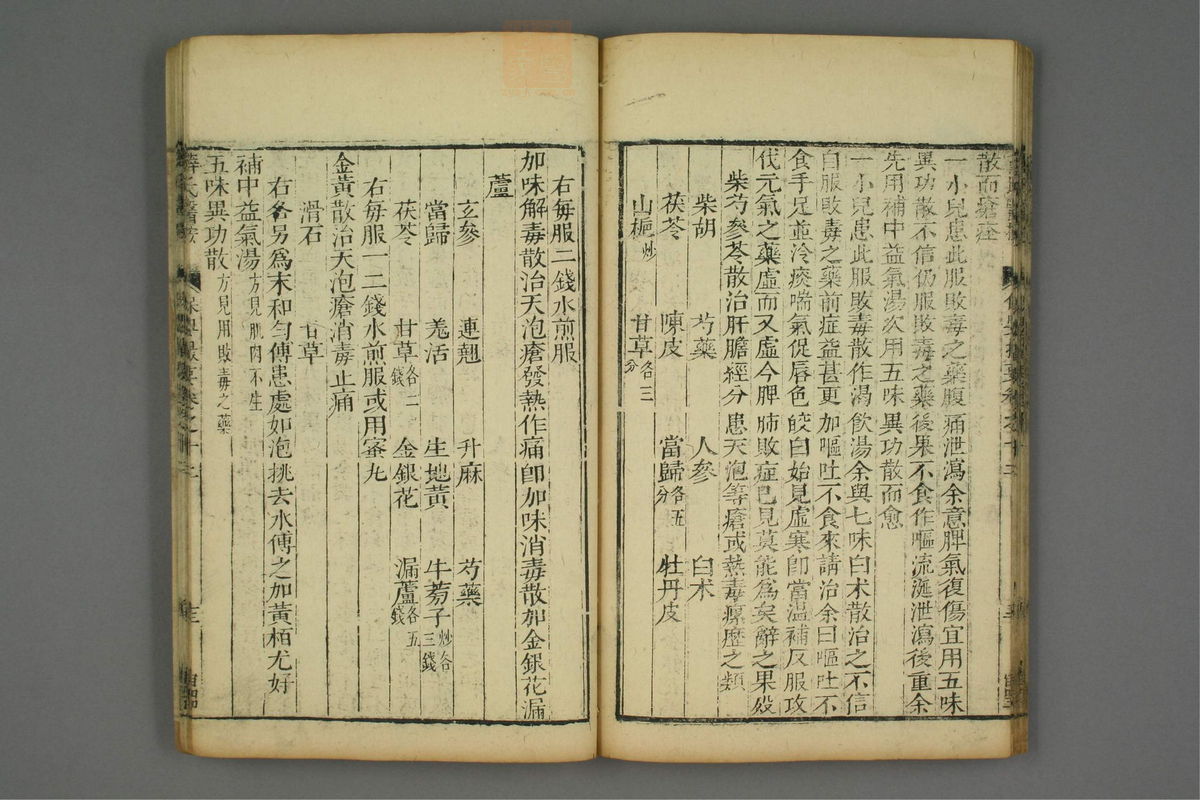 散而瘡痊
一小兒患此服敗毒之藥腹痛泄瀉余意脾氣復傷宜用五味
異功散不信仍服敗毒之藥後果不食作嘔流涎泄瀉後重余
先用補中益氣湯次用五味異功散而愈
一小兒患此服敗毒散作渴飲湯余與七味白术散治之不信
自服敗毒之藥前症益甚更加嘔吐不食來請治余曰嘔吐不
食手足並冷痰喘氣促唇色皎白始見虛寒即當溫補反服攻
伐元氣之藥虛而又虛今脾肺敗症已見莫能爲矣辭之果歿
柴芍參苓散治肝膽經分患天泡等瘡或熱毒瘰癧之類
柴胡 芍藥 人參 白术
茯苓 陳皮 當歸各五分 牡丹皮
山梔炒 甘草各三分
右每服二錢水煎服
加味解毒散治天泡瘡發熱作痛即加味消毒散加金銀花漏
蘆
玄參 連翹 升麻 芍藥
當歸 羌活 生地黃 牛蒡子炒各三錢
茯苓 甘草各二錢 金銀花 漏蘆各五錢
右每服一二錢水煎服或用蜜丸
金黃散治天泡瘡消毒止痛
滑石 甘草
右各另爲末和勻傅患處如泡挑去水傅之加黃栢尤好
補中益氣湯方見肌肉不生
五味異功散方見用敗毒之藥
薛氏醫按 保嬰撮要卷之十二